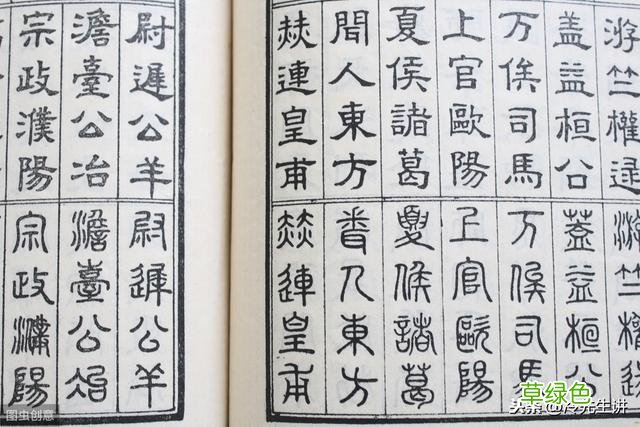 游竺權逯
盖益桓公
万俟司馬
上官歐陽
夏侯諸葛
聞人東方
赫連皇甫
游竺權逯
蓋益桓公
万俟司馬
上官歐陽
夏侯諸葛
聞人東方
赫連皇甫
尉遲公羊
澹臺公冶
宗政濮陽
尉遲公羊
澹臺公冶
宗政濮陽
图虫创意
草绿色